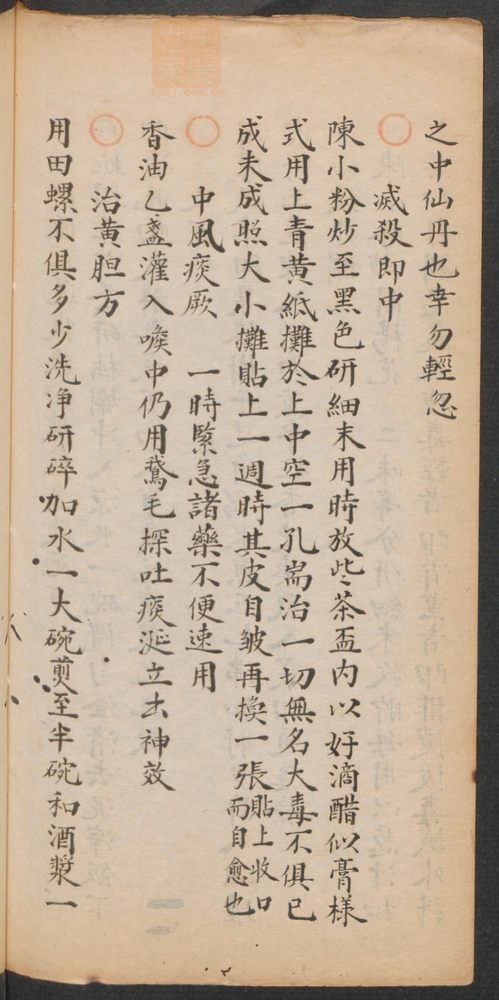 之中仙丹也幸勿輕忽
滅殺即中
陳小粉炒至黑色研細末用時放些茶盃内以好滴醋似膏樣
式用上青黃紙攤於上中空一孔耑治一切無名大毒不俱已
成未成照大小攤貼上一週時其皮自皱再換一張貼上收口而自愈也
中風痰厥 一時緊急諸藥不便速用
香油乙盞灌入喉中仍用鵞毛探吐痰涎立去神效
治黃胆方
用田螺不俱多少洗净研碎加水一大碗煎至半碗和酒漿一